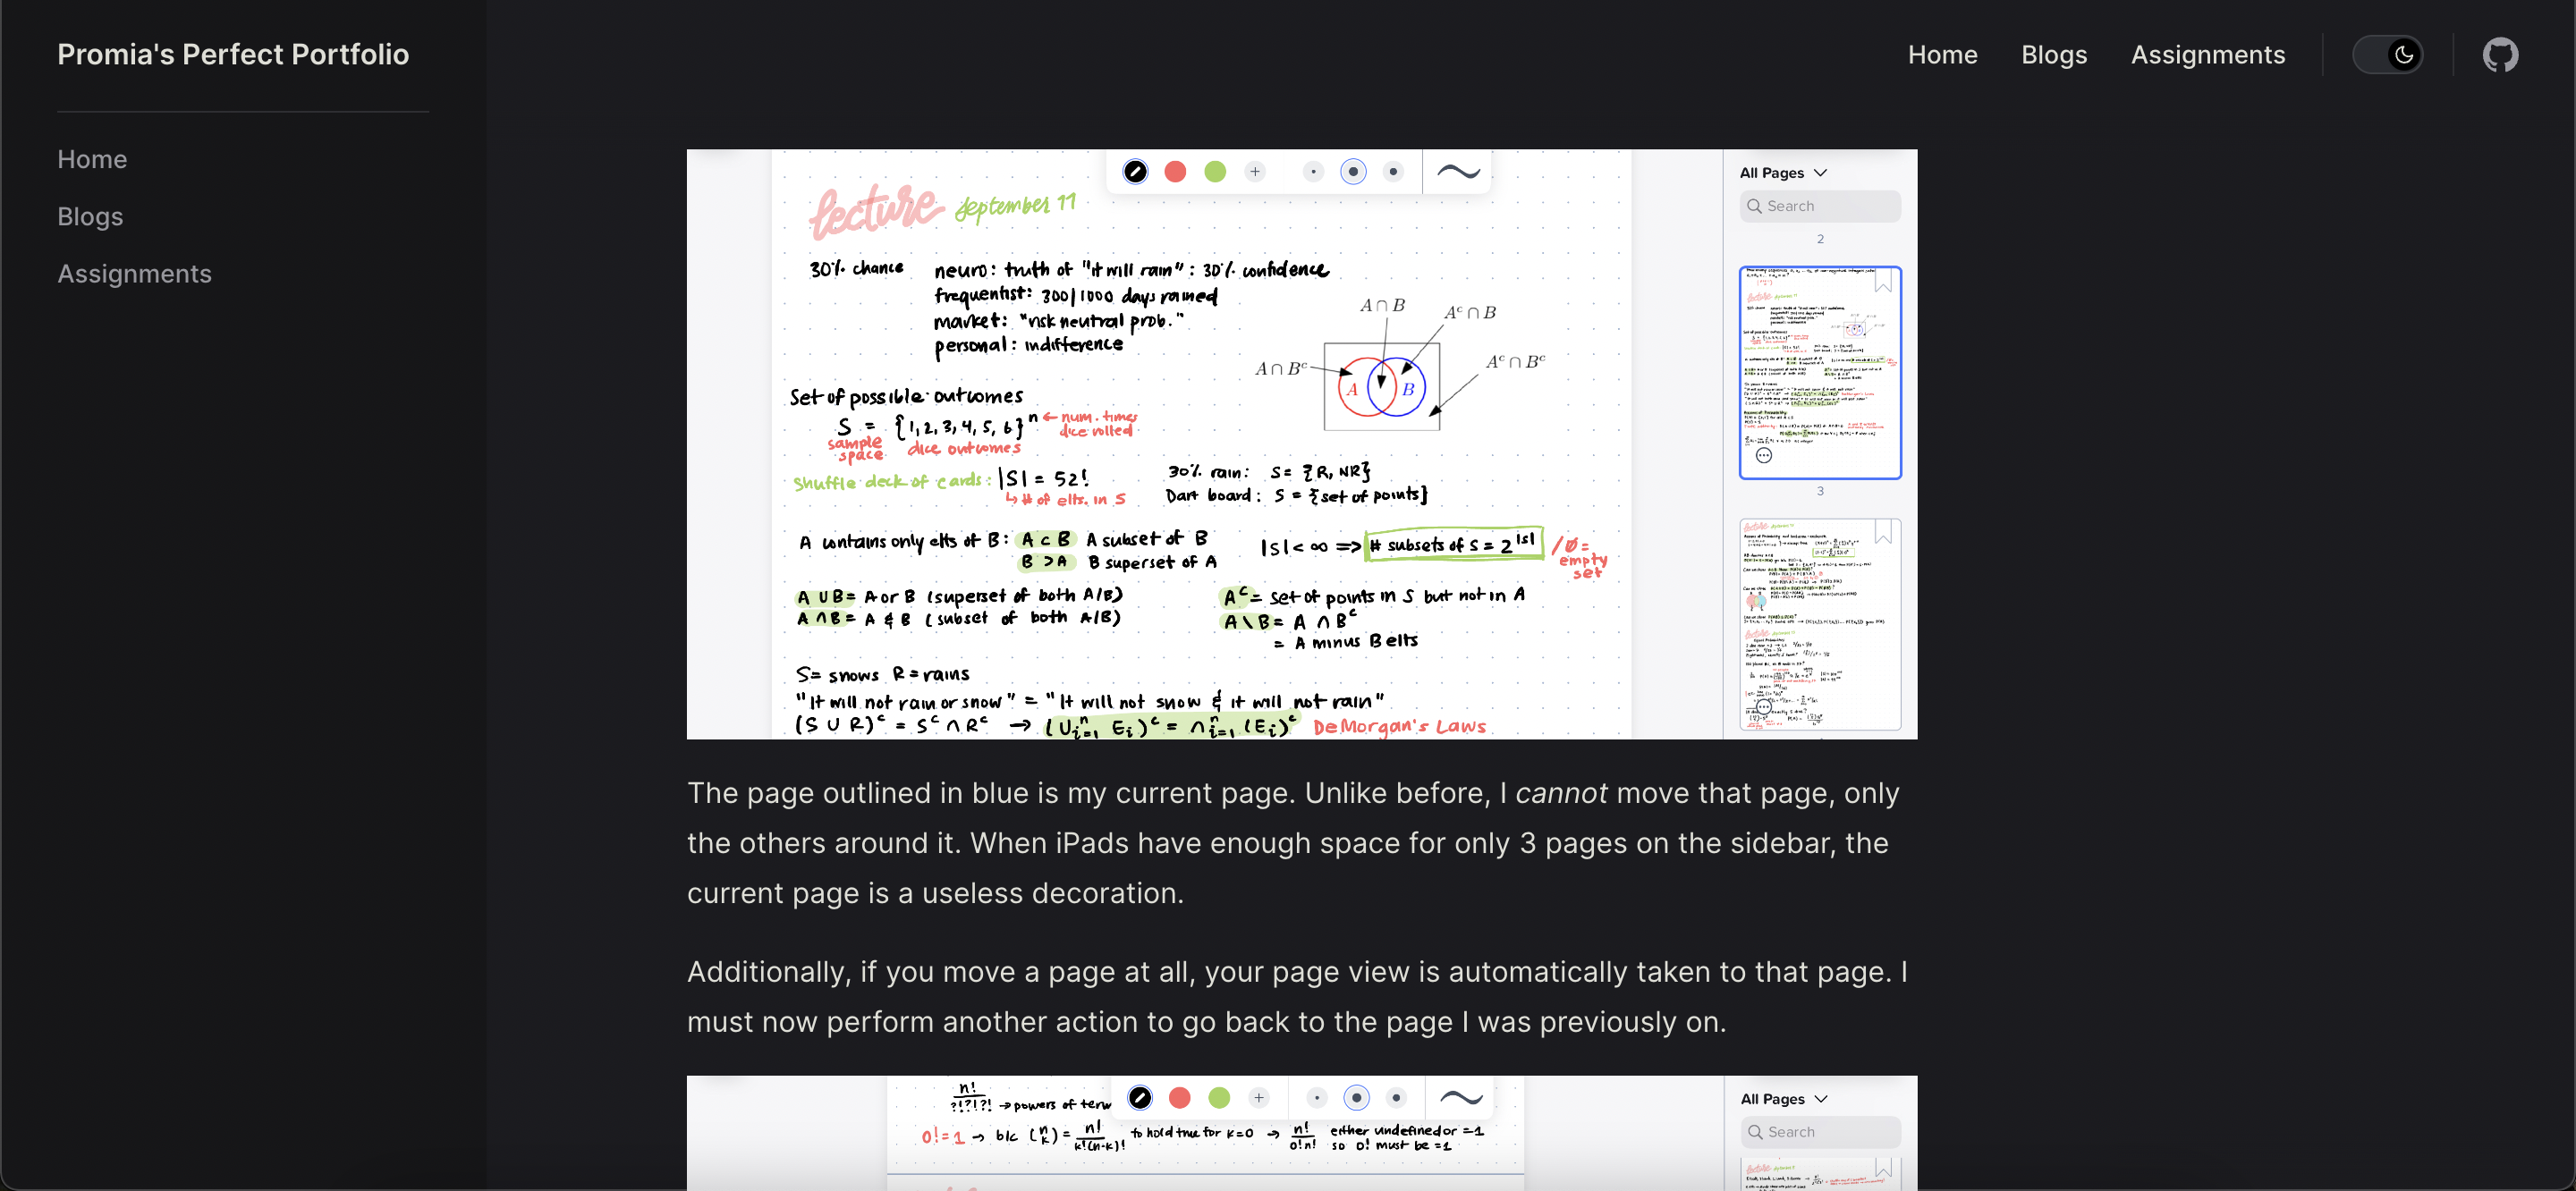 Promia's Perfect Portfolio
Home Blogs Assignments
Home
Blogs
Assignments
lecture september 11
30% chance neuro: truth of "it will rain": 30% confidence
frequentist: 300/1000 days rained
market: "risk neutral prob."
personal: indifference
A ∩ B
Aᶜ ∩ B
A ∩ Bᶜ
Aᶜ ∩ Bᶜ
A B
Set of possible outcomes
S = {1, 2, 3, 4, 5, 6}ⁿ ← num. times dice rolled
sample space dice outcomes
Shuffle deck of cards: |S| = 52!
↳ # of elts. in S
30% rain: S = {R, NR}
Dart board: S = {set of points}
A contains only elts of B: A ⊂ B A subset of B
B > A B superset of A
|S| < ∞ => # subsets of S = 2^|S| / Ø = empty set
A ∪ B = A or B (superset of both A/B)
A ∩ B = A & B (subset of both A/B)
Aᶜ = set of points in S but not in A
A \ B = A ∩ Bᶜ
= A minus B elts
S = snows R = rains
"It will not rain or snow" = "It will not snow & it will not rain"
(S ∪ R)ᶜ = Sᶜ ∩ Rᶜ → (∪ⁿᵢ₌₁ Eᵢ)ᶜ = ∩ⁿᵢ₌₁ (Eᵢ)ᶜ DeMorgan's Laws
All Pages
Search
2
3
The page outlined in blue is my current page. Unlike before, I cannot move that page, only
the others around it. When iPads have enough space for only 3 pages on the sidebar, the
current page is a useless decoration.
Additionally, if you move a page at all, your page view is automatically taken to that page. I
must now perform another action to go back to the page I was previously on.
n!
?!?!?! → powers of
0! = 1 → b/c (n k) = n!/k!(n-k)! to hold true for k=0 → n!/0!n! either undefined or =1
so 0! must be =1
All Pages
Search